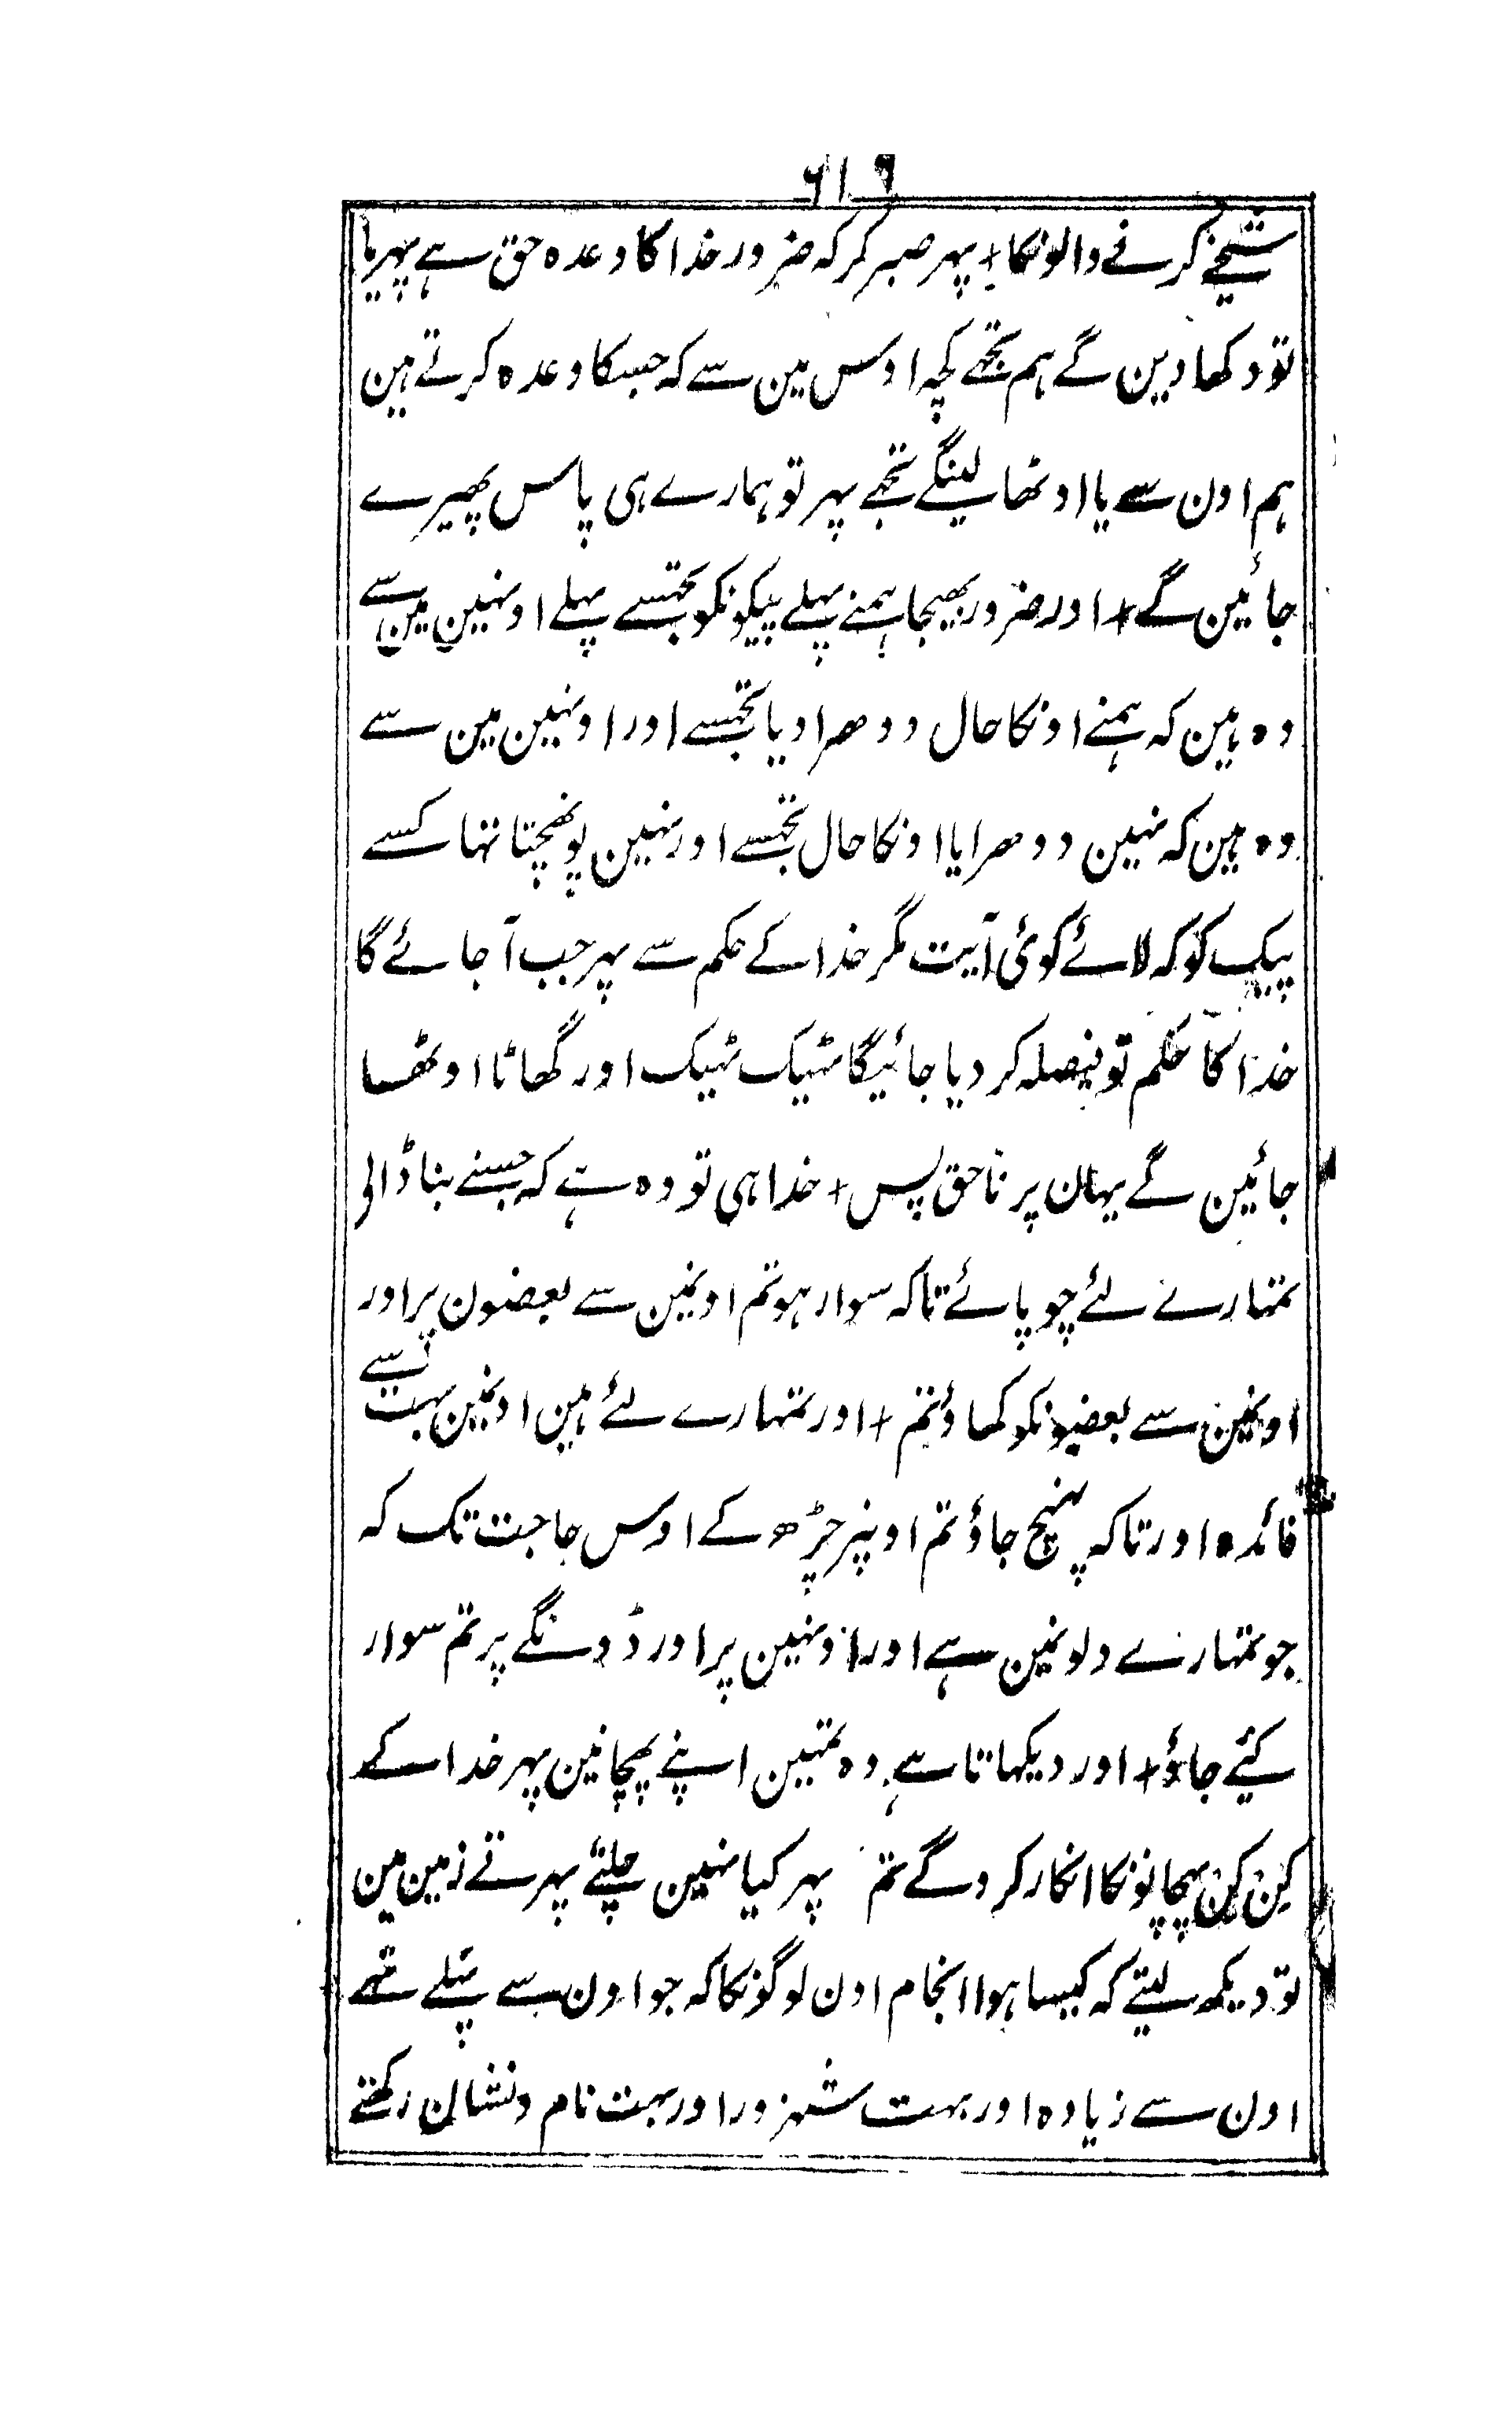 ۶۱۹
شیخے کرنے والونکا + پہر صبر کر کہ ضرور خدا کا وعدہ حق ہے پہر یا
تو دکھا دین گے ہم تجھے کچہ اوس مین سے کہ جسکا وعدہ کرتے ہین
ہم اون سے یا اوٹھا لینگے تجھے پہر تو ہمارے ہی پاس پھیرے
جائین گے + اور ضرور بھیجا ہمنے پہلے پیکونکو تجھسے پہلے اونہین مین سے
وہ ہین کہ ہمنے اونکا حال دوھرا دیا تجھسے اور اونہین مین سے
وہ ہین کہ نہین دوھرایا اونکا حال تجھسے اور نہین پونھچتا تہا کسے
پیک کو کہ لائے کوئی آیت مگر خدا کے حکم سے پہر جب آ جائے گا
خدا کا حکم تو فیصلہ کر دیا جائیگا ٹھیک ٹھیک اور گھاٹا اوٹھا
جائین گے یہان پر ناحق پس + خدا ہی تو وہ ہے کہ جسنے بنا ڈالی
تمہارے لئے چوپائے تاکہ سوار ہو تم اونمین سے بعضون پر اور
اونمین سے بعضونکو کھاؤ تم + اور تمہارے لئے ہین اونمین بہت سے
فائدہ اور تاکہ پہنچ جاؤ تم اونپر چڑھ کے اوس حاجت تک کہ
جو تمہارے دلونمین ہے اور اونہین پر اور ڈونگے پر تم سوار
کئے جاؤ + اور دیکہاتا ہے وہ تمہین اپنے پہچانین پہر خدا کے
کن کن پہچانونکا انکار کروگے تم پہر کیا نہین چلتے پہرتے زمین مین
تو دیکہ لیتے کہ کیسا ہوا انجام اون لوگونکا کہ جو اون سے پہلے تھے
اون سے زیادہ اور بہت شہزور اور بہت نام و نشان رکھتے